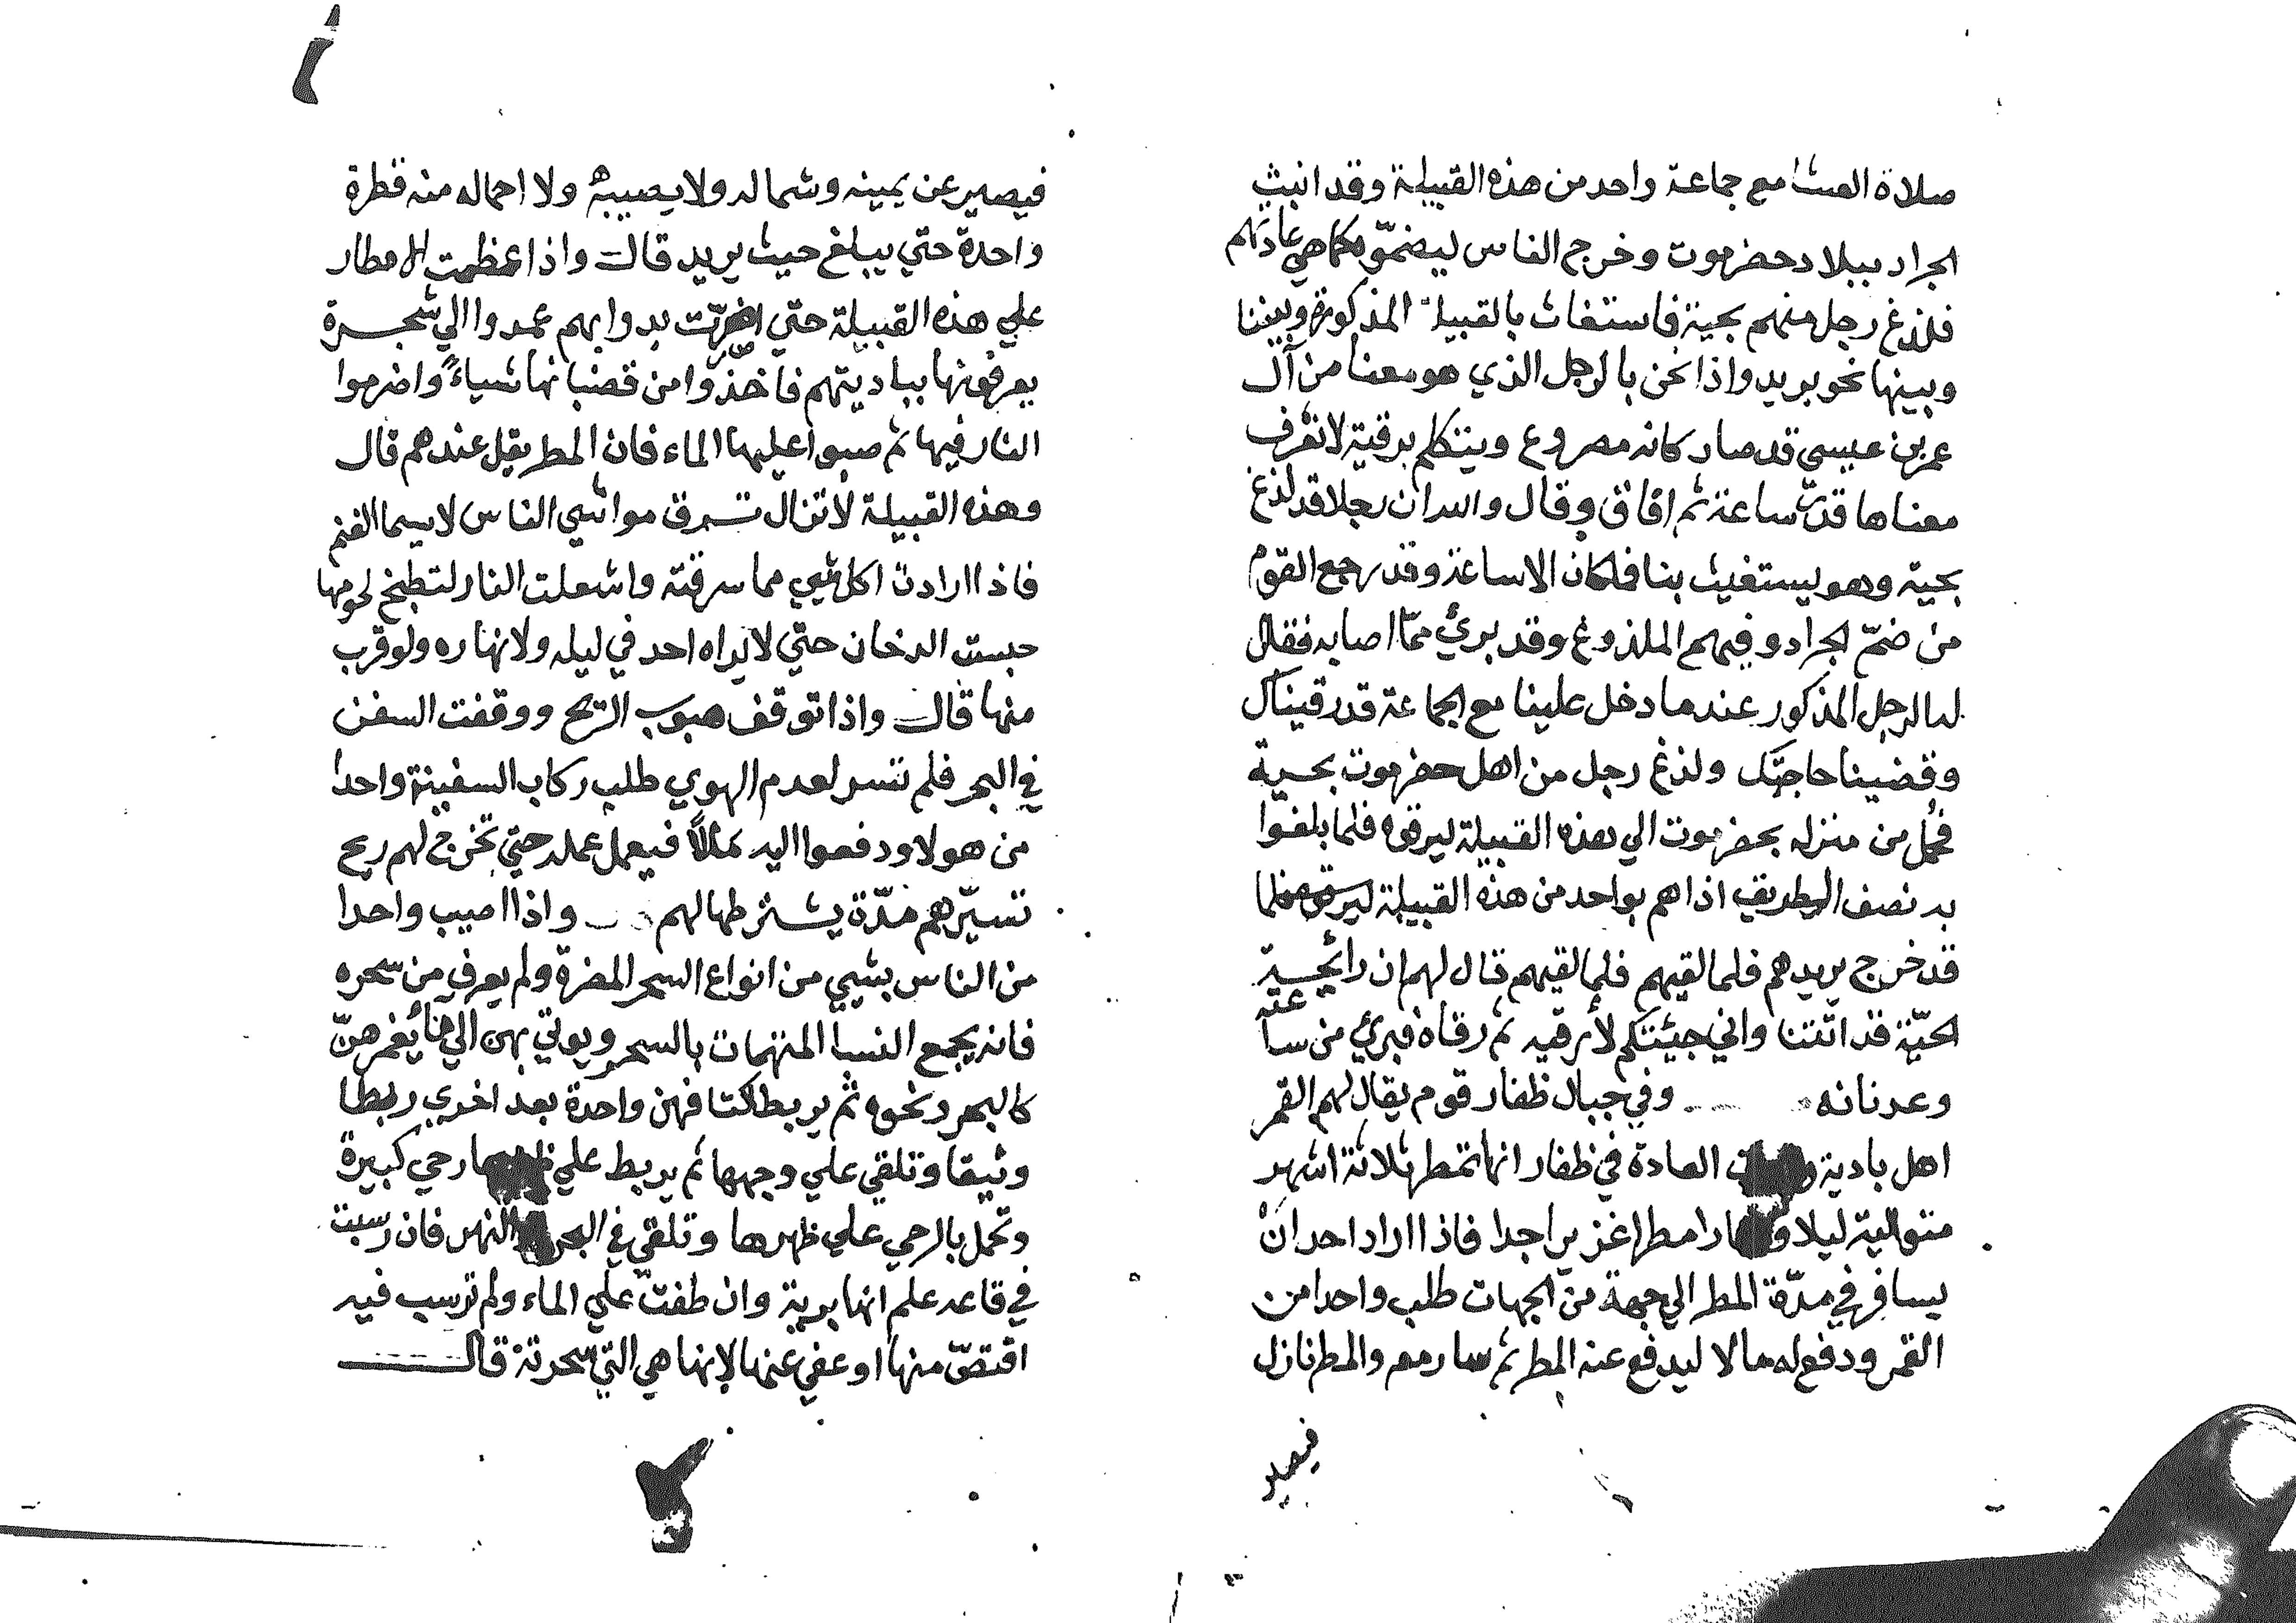 صلاة العشا مع جماعة واحد من هذه القبيلة وقد انبث
الجراد ببلاد حضرموت وخرج الناس ليضمّوه كما هي عادتهم
فلذغ رجل منهم بحية فاستغاث بالقبيلة المذكورة وبيننا
وبينها نحو بريد واذا نحن بالرجل الذي هو معنا من آل
عمر بن عيسى قد صار كانه مصروع ويتكلم برقية لا نعرف
معناها قدر ساعة ثم افاق وقال والله ان رجلا قد لذغ
بحية وهو يستغيث بنا فلما كان الا ساعة وقد رجع القوم
من ضمّ الجراد وفيهم الملذوغ وقد برئ ممّا اصابه فقال
له الرجل المذكور عندما دخل علينا مع الجماعة قد رقيناك
وقضينا حاجتك ولذغ رجل من اهل حضرموت بحية
فحُمل من منزله بحضرموت الي هذه القبيلة ليرقوه فلما بلغوا
به نصف الطريق اذا هم بواحد من هذه القبيلة
قد خرج يريدهم فلما لقيهم فلما لقيهم قال لهم ان رائحة
الحيّة قد اتتنا واني جيئتكم لأرقيه ثم رقاه فبرئ من ساعته
وفي جبال ظفار قوم يقال لهم القمر
اهل بادية العادة في ظفار انها تمطر ثلاثة اشهر
متوالية ليلا ونهارا مطرا غزيرا جدا فاذا اراد احد انْ
يسافر في مدّة المطر الي جهة من الجهات طلب واحدا من
القمر ودفع له مالا ليدفع عنه المطر ثم سار معه والمطر نازل
فيصير
فيصير عن يمينه وشماله ولا يصيبه ولا احماله منه قطرة
واحدة حتي يبلغ حيث يريد قال واذا عظمت الامطار
علي هذه القبيلة حتي اضرّت بدوابهم عمدوا الي شجرة
يعرفونها بباديتهم فاخذوا من قضبانها شياءً واضرموا
النار فيها ثم صبوا عليها الماء فان المطر يقل عندهم قال
وهذه القبيلة لا تزال تسرق مواشي الناس لا سيما الغنم
فاذا ارادت اكل شيي مما سرقته واشعلت النار لتطبخ لحومها
حبست الدخان حتي لا يراه احد في ليله ولا نهاره ولو قرب
منها قال واذا توقف هبوب الريح ووقفت السفن
في البحر فلم تسر لعدم الهوي طلب ركاب السفينة واحدا
من هولا ودفعوا اليه مالاً فيعمل عمله حتي تخرج لهم ريح
تسيّرهم مدّة يشترطها لهم واذا اصيب واحدا
من الناس بشيي من انواع السحر المضرة ولم يعرف من سحره
فانه يجمع النسا المتهمات بالسحر ويوتي بهن الي ما يُغمرهنّ
كالبحر ونحوه ثم يربط اكتافهن واحدة بعد اخري ربطا
وثيقا وتلقي علي وجهها ثم يربط علي رحي كبيرة
وتحمل بالرحي علي ظهرها وتلقي في البحر النهر فان رسبت
في قاعه علم انها برية وان طفت علي الماء ولم ترسب فيه
اقتصّ منها او عفي عنها لانها هي التي سحرته قال